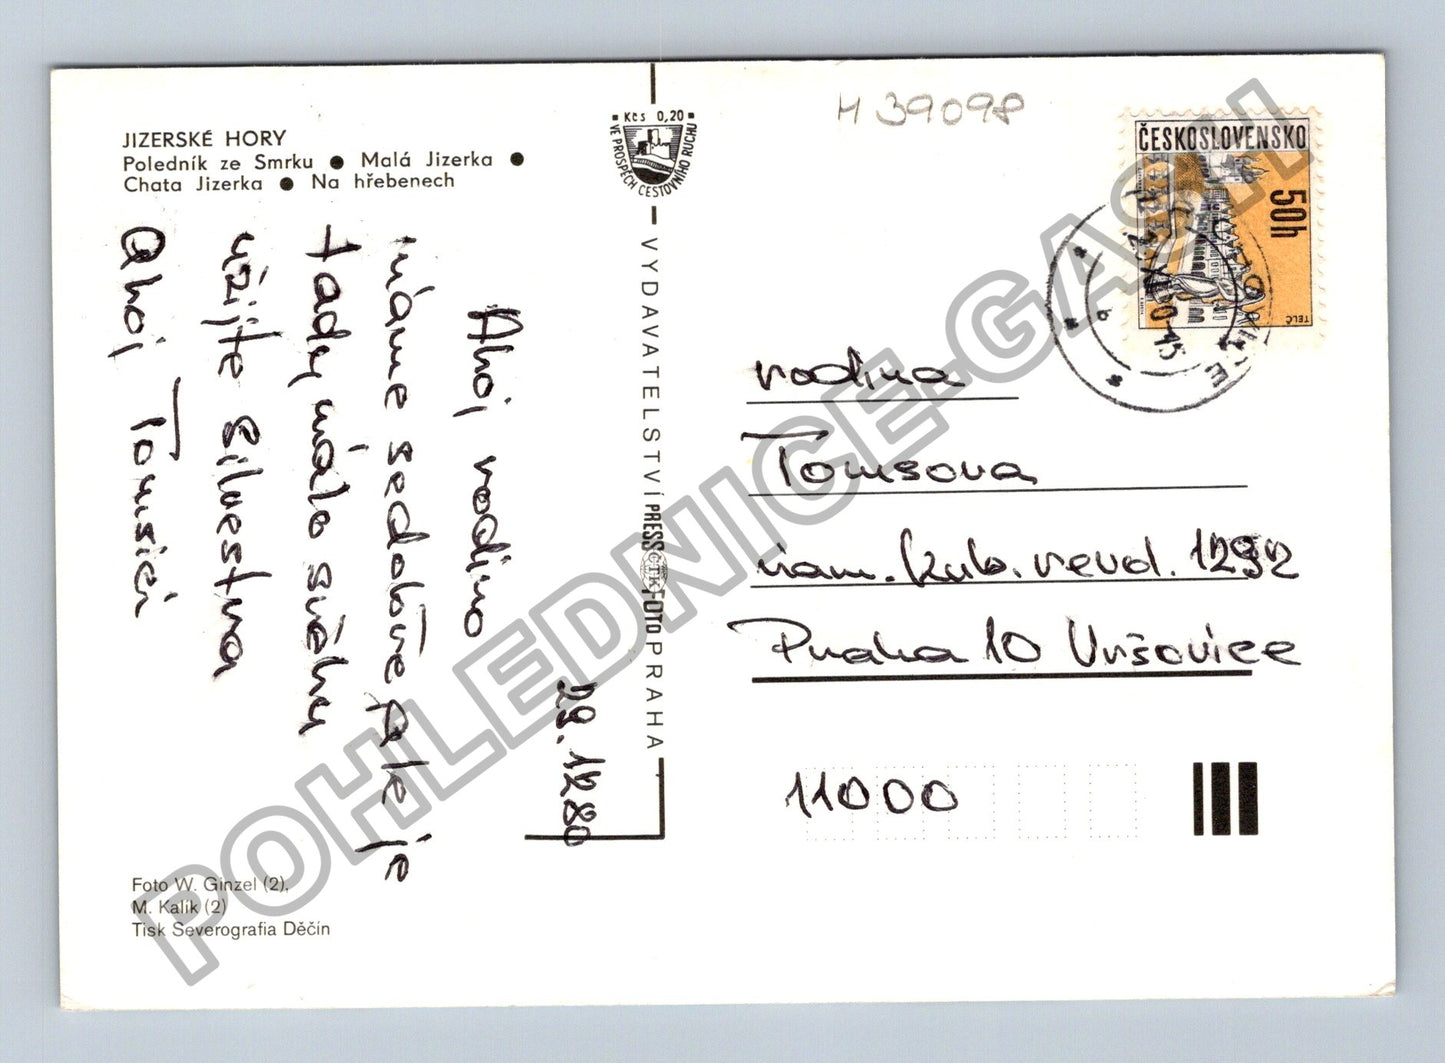 JIZERSKÉ HORY
Poledník ze Smrku ● Malá Jizerka ●
Chata Jizerka ● Na hřebenech
29.12 80
Ahoj rodino
máme se dobře ale je
tady málo sněhu
užijte Silvestra
Ahoj Tomsici
Foto W. Ginzel (2),
M. Kalík (2)
Tisk Severografia Děčín
Kčs 0,20
VE PROSPĚCH CESTOVNÍHO RUCHU
VYDAVATELSTVÍ PRESSFOTO PRAHA
ČTK
M 39098
ČESKOSLOVENSKO
50h
TELČ
rodina
Tomsova
nam. kub. revol. 1292
Praha 10 Vršovice
11000
POHLEDNICE-GASH